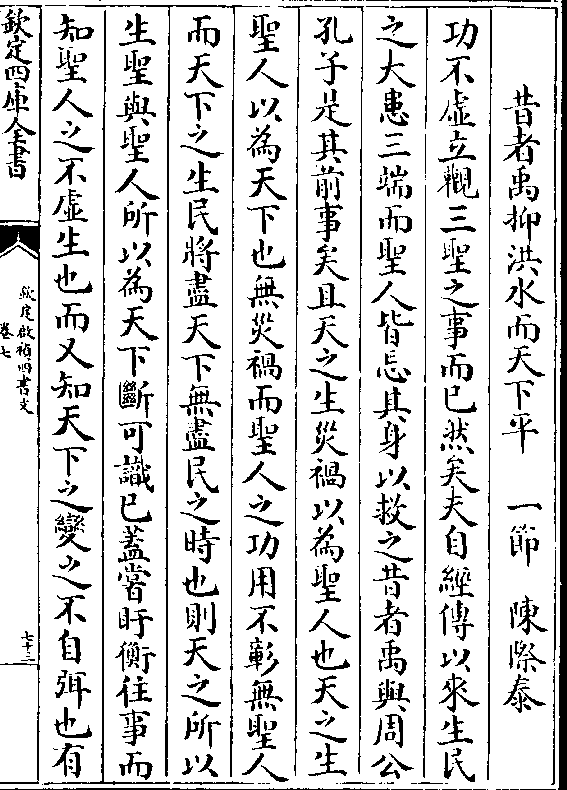 昔者禹抑洪水而天下平　一節　陳際泰
功不虛立觀三聖之事而已然矣夫自經傳以來生民
之大患三端而聖人皆忘其身以救之昔者禹與周公
孔子是其前事矣且天之生災禍以為聖人也天之生
聖人以為天下也無災禍而聖人之功用不彰無聖人
而天下之生民將盡天下無盡民之時也則天之所以
生聖與聖人所以為天下斷可識已蓋嘗盱衡往事而
知聖人之不虛生也而又知天下之變之不自弭也有
欽定四庫全書
欽定啟禎四書文
卷七
七十三